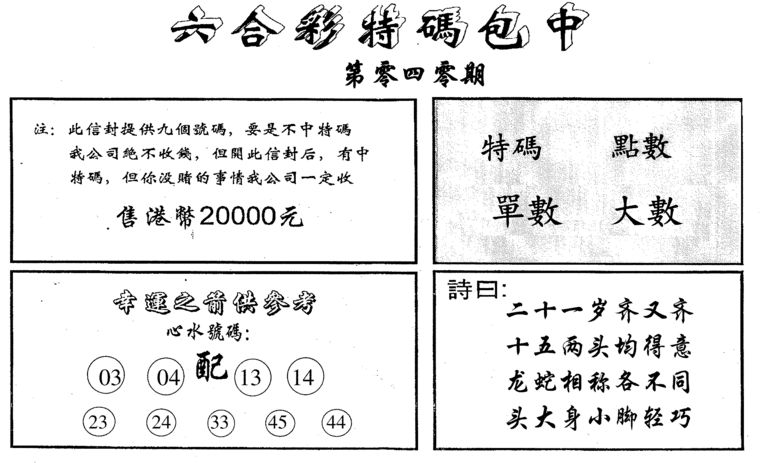 六合彩特碼包中
第零四零期
注：此信封提供九個號碼，要是不中特碼
我公司絕不收錢，但開此信封后，有中
特碼，但你没賭的事情我公司一定收
售港幣20000元
特碼 點數
單數 大數
幸運之箭供參考
心水號碼：
03 04 配 13 14
23 24 33 45 44
詩曰：
二十一岁齐又齐
十五两头均得意
龙蛇相称各不同
头大身小脚轻巧